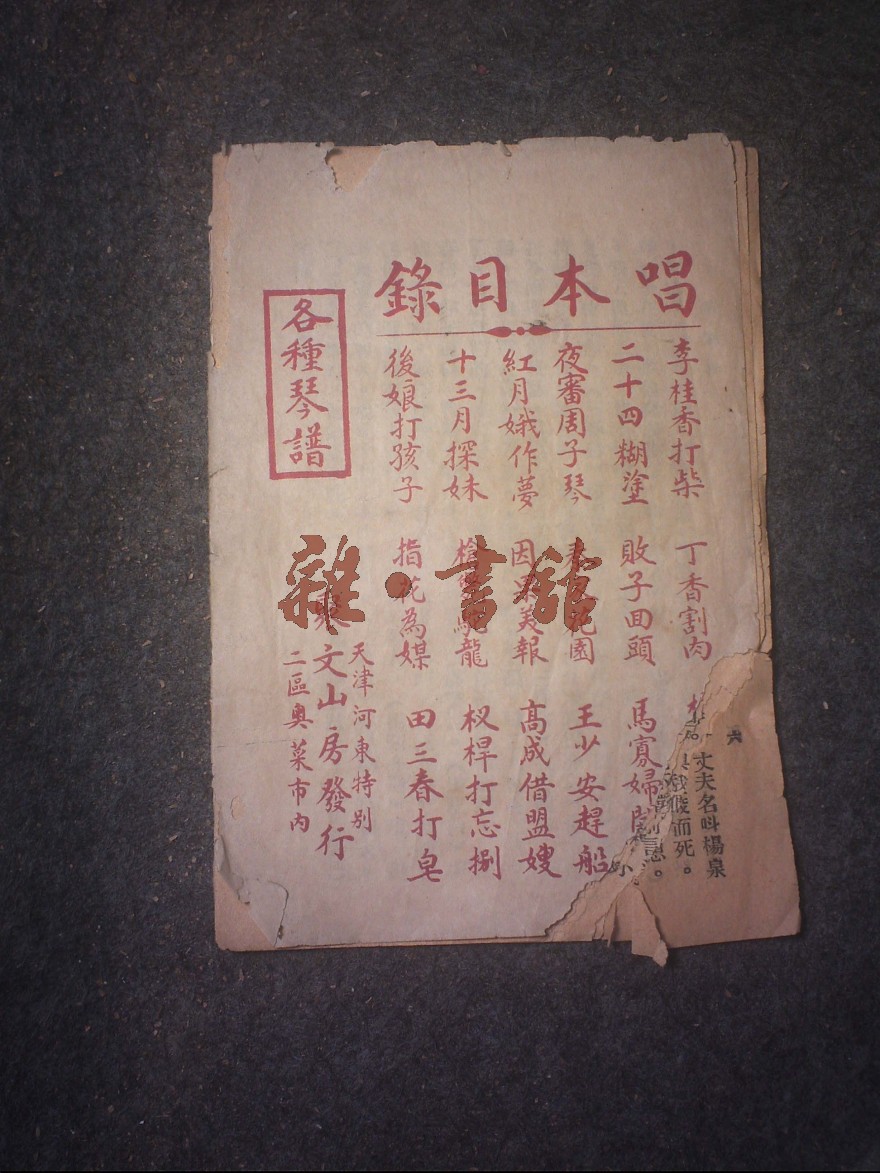 唱本目錄
李桂香打柴 丁香割肉
二十四糊塗 敗子回頭 馬寡婦開
夜審周子琴 王少安趕船
紅月娥作夢 因果美報 高成借盟嫂
十三月探妹 龍 杈桿打忘捌
後娘打孩子 指花為媒 田三春打皂
各種琴譜
天津河東特別
文山房發行
二區奧菜市內
六
丈夫名叫楊泉
而死。
雜·書舘